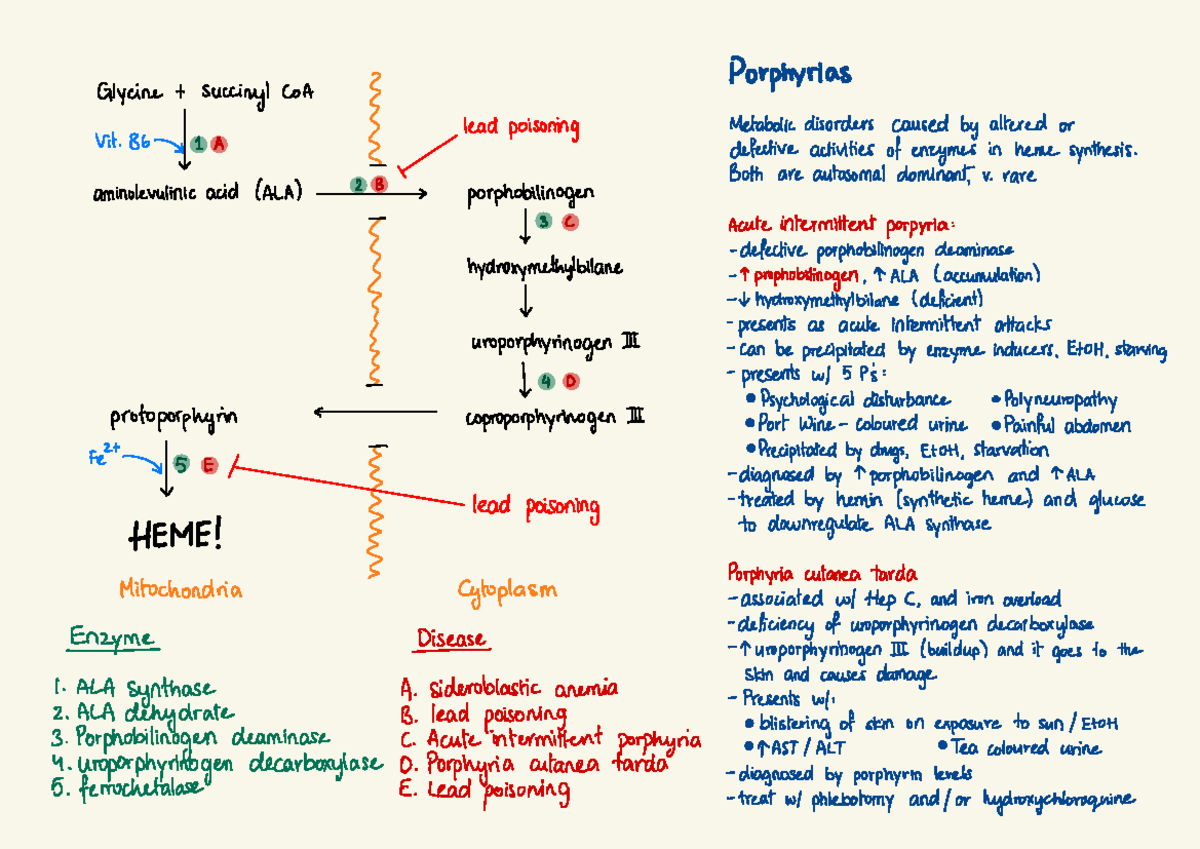 Glycine + succinyl CoA
Vit. B6
1 A
lead poisoning
aminolevulinic acid (ALA)
2 B
porphobilinogen
3 C
hydroxymethylbilane
uroporphyrinogen III
4 D
protoporphyrin
coproporphyrinogen III
Fe2+
5 E
lead poisoning
HEME!
Mitochondria
Cytoplasm
Enzyme
1. ALA synthase
2. ALA dehydrate
3. Porphobilinogen deaminase
4. uroporphyrinogen decarboxylase
5. ferrochetalase
Disease
A. sideroblastic anemia
B. lead poisoning
C. Acute intermittent porphyria
D. Porphyria cutanea tarda
E. Lead poisoning
Porphyrias
Metabolic disorders caused by altered or
defective activities of enzymes in heme synthesis.
Both are autosomal dominant, v. rare
Acute intermittent porpyria:
- defective porphobilinogen deaminase
- ↑ prophobilinogen, ↑ ALA (accumulation)
- ↓ hydroxymethylbilane (deficient)
- presents as acute intermittent attacks
- can be precipitated by enzyme inducers, EtOH, starving
- presents w/ 5 P's:
• Psychological disturbance • Polyneuropathy
• Port Wine-coloured urine • Painful abdomen
• Precipitated by drugs, EtOH, starvation
- diagnosed by ↑ porphobilinogen and ↑ ALA
- treated by hemin (synthetic heme) and glucose
to downregulate ALA synthase
Porphyria cutanea tarda
- associated w/ Hep C, and iron overload
- deficiency of uroporphyrinogen decarboxylase
- ↑ uroporphyrinogen III (buildup) and it goes to the
skin and causes damage
- Presents w/:
• blistering of skin on exposure to sun / EtOH
• ↑ AST / ALT • Tea coloured urine
- diagnosed by porphyrin levels
- treat w/ phlebotomy and/or hydroxychloroquine